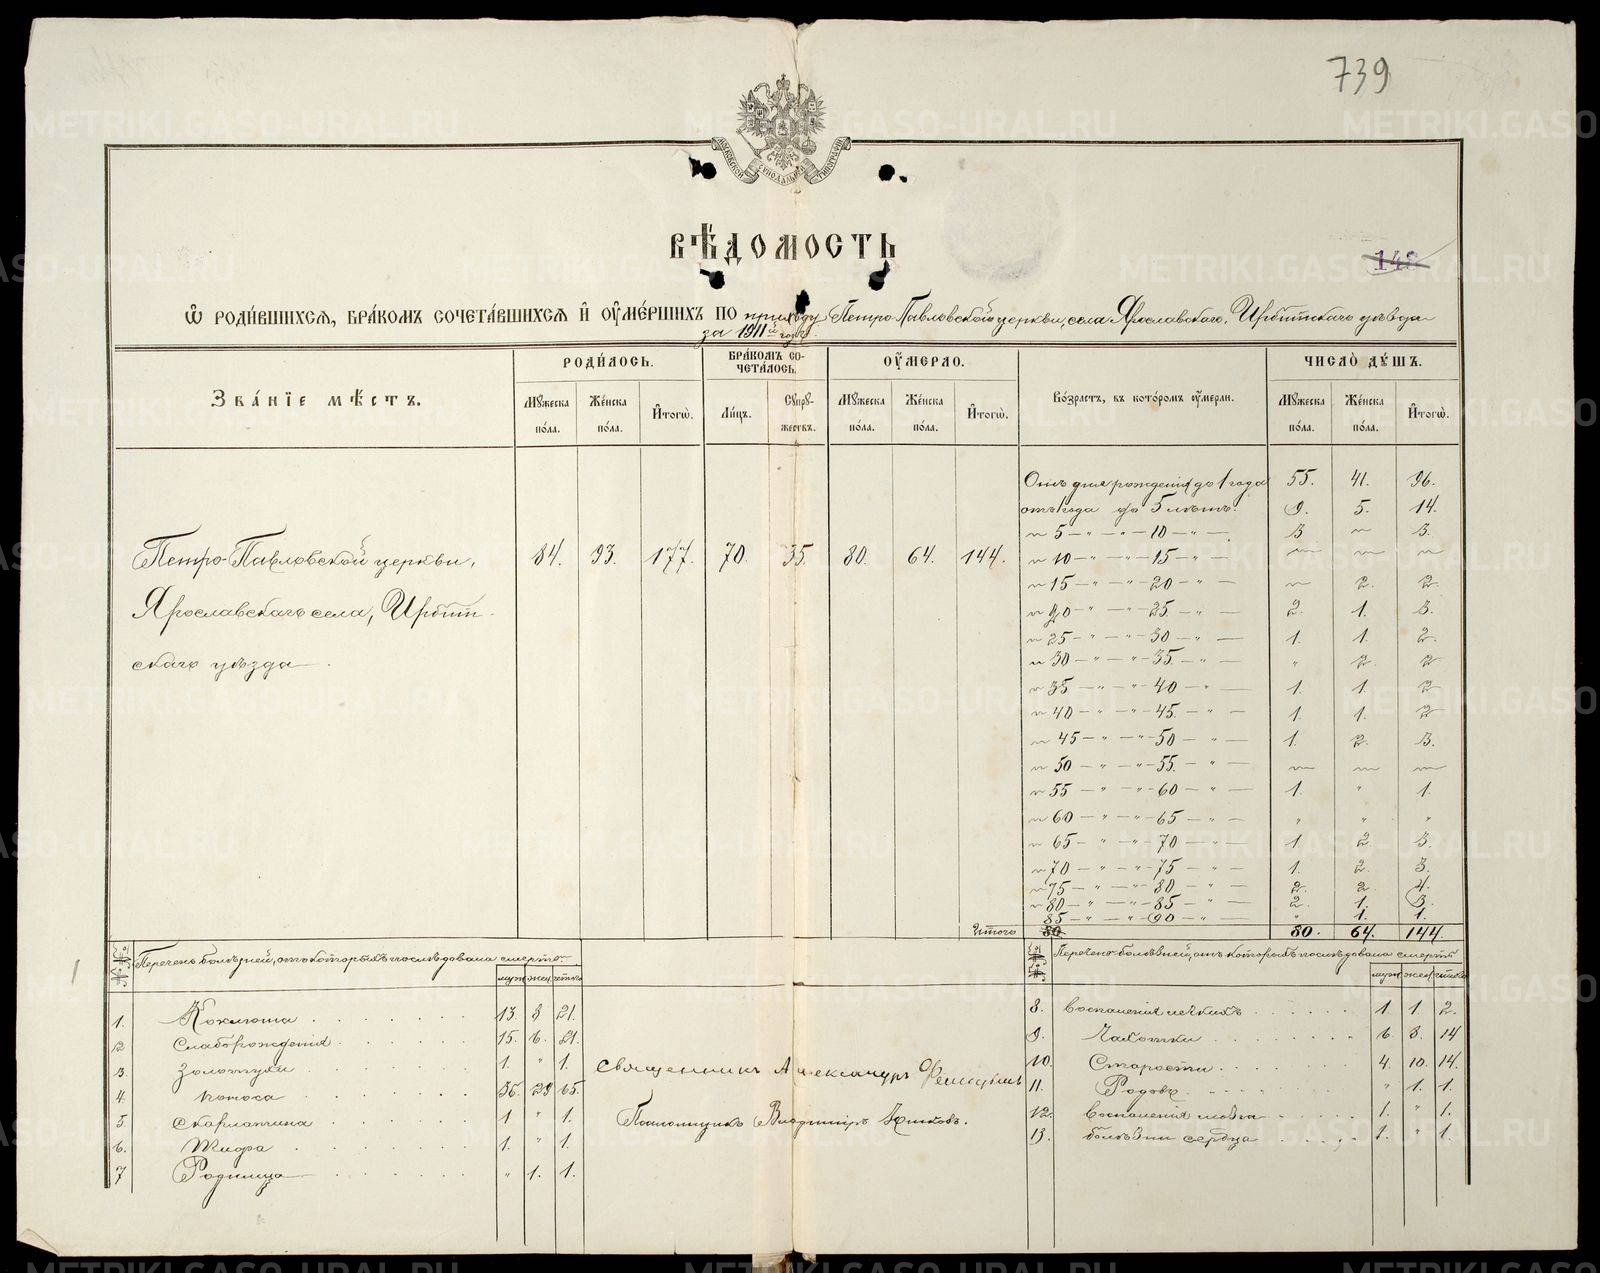 739
МОСКОВСКОЙ СѴНОДАЛЬНОЙ ТИПОГРАФІИ
ВѢДОМОСТЬ
148
Ѡ РОДИ́ВШИХСѦ, БРА́КОМЪ СОЧЕТА́ВШИХСѦ И҆ ОУ҆МЕ́РШИХЪ ПО приходу Петро-Павловской церкви, села Ярославскаго, Ирбитскаго уѣзда
за 1911й годъ.
Зва́нїе мѣ́стъ.
РОДИ́ЛОСЬ.
БРА́КОМЪ СО-
ЧЕТА́ЛОСЬ.
ОУ҆́МЕРЛО.
Во́зрастъ, въ кото́ромъ оу҆́мерли.
ЧИСЛО̀ ДꙊ́ШЪ.
Мꙋ́жеска по́ла.
Же́нска по́ла.
И҆тогѡ̀.
Ли́цъ.
Сꙋпрꙋ́-
жествъ.
Мꙋ́жеска по́ла.
Же́нска по́ла.
И҆тогѡ̀.
Мꙋ́жеска по́ла.
Же́нска по́ла.
И҆тогѡ̀.
Петро-Павловской церкви,
Ярославскаго села, Ирбит-
скаго уѣзда.
84. 93. 177. 70. 35. 80. 64. 144.
Отъ дня рожденія до 1 года 55. 41. 96.
отъ 1 года до 5 лѣтъ. 9. 5. 14.
" 5 — " — " — 10 — " — 3 " 3.
" 10 — " — " — 15 — " — " " "
" 15 — " — " — 20 — " — " 2. 2.
" 20 — " — " — 25 — " — 2. 1. 3.
" 25 — " — " — 30 — " — 1. 1. 2.
" 30 — " — " — 35. — " — " 2. 2
" 35 — " — " — 40 — " — 1. 1. 2
" 40 — " — " — 45. — " — 1. 1. 2
" 45 — " — " — 50 — " — 1. 2. 3.
" 50 — " — " — 55. — " — " " "
" 55 — " — " — 60 — " — 1. " 1.
" 60 — " — " — 65 — " — " " "
" 65 — " — " — 70 — " — 1 2. 3.
" 70 — " — " — 75 — " — 1. 2. 3.
" 75 — " — " — 80 — " — 2. 2. 4.
" 80 — " — " — 85 — " — 2. 1. 3.
85 — " — " — 90 — " — " 1. 1.
Итого 80 80. 64. 144.
№№ Перечень болѣзней, отъ которыхъ послѣдовала смерть. муж жен итого
1. Коклюша 13. 8 21.
2 Слаборожденія 15. 6. 21.
3. Золотухи 1. " 1.
4. Поноса 36. 29 65.
5. Скарлатина 1 " 1.
6. Тифа 1. " 1.
7 Родимца " 1. 1.
Священникъ Александръ
Псаломщикъ Владиміръ
№№ Перечень болѣзней, отъ которыхъ послѣдовала смерть муж жен итого
8. Воспаленія легкихъ 1. 1. 2.
9. Чахотки 6 8. 14
10. Старости 4. 10. 14.
11. Родовъ " 1. 1.
12. Воспаленія мозга 1. " 1.
13. Болѣзни сердца 1. " 1.
METRIKI.GASO-URAL.RU